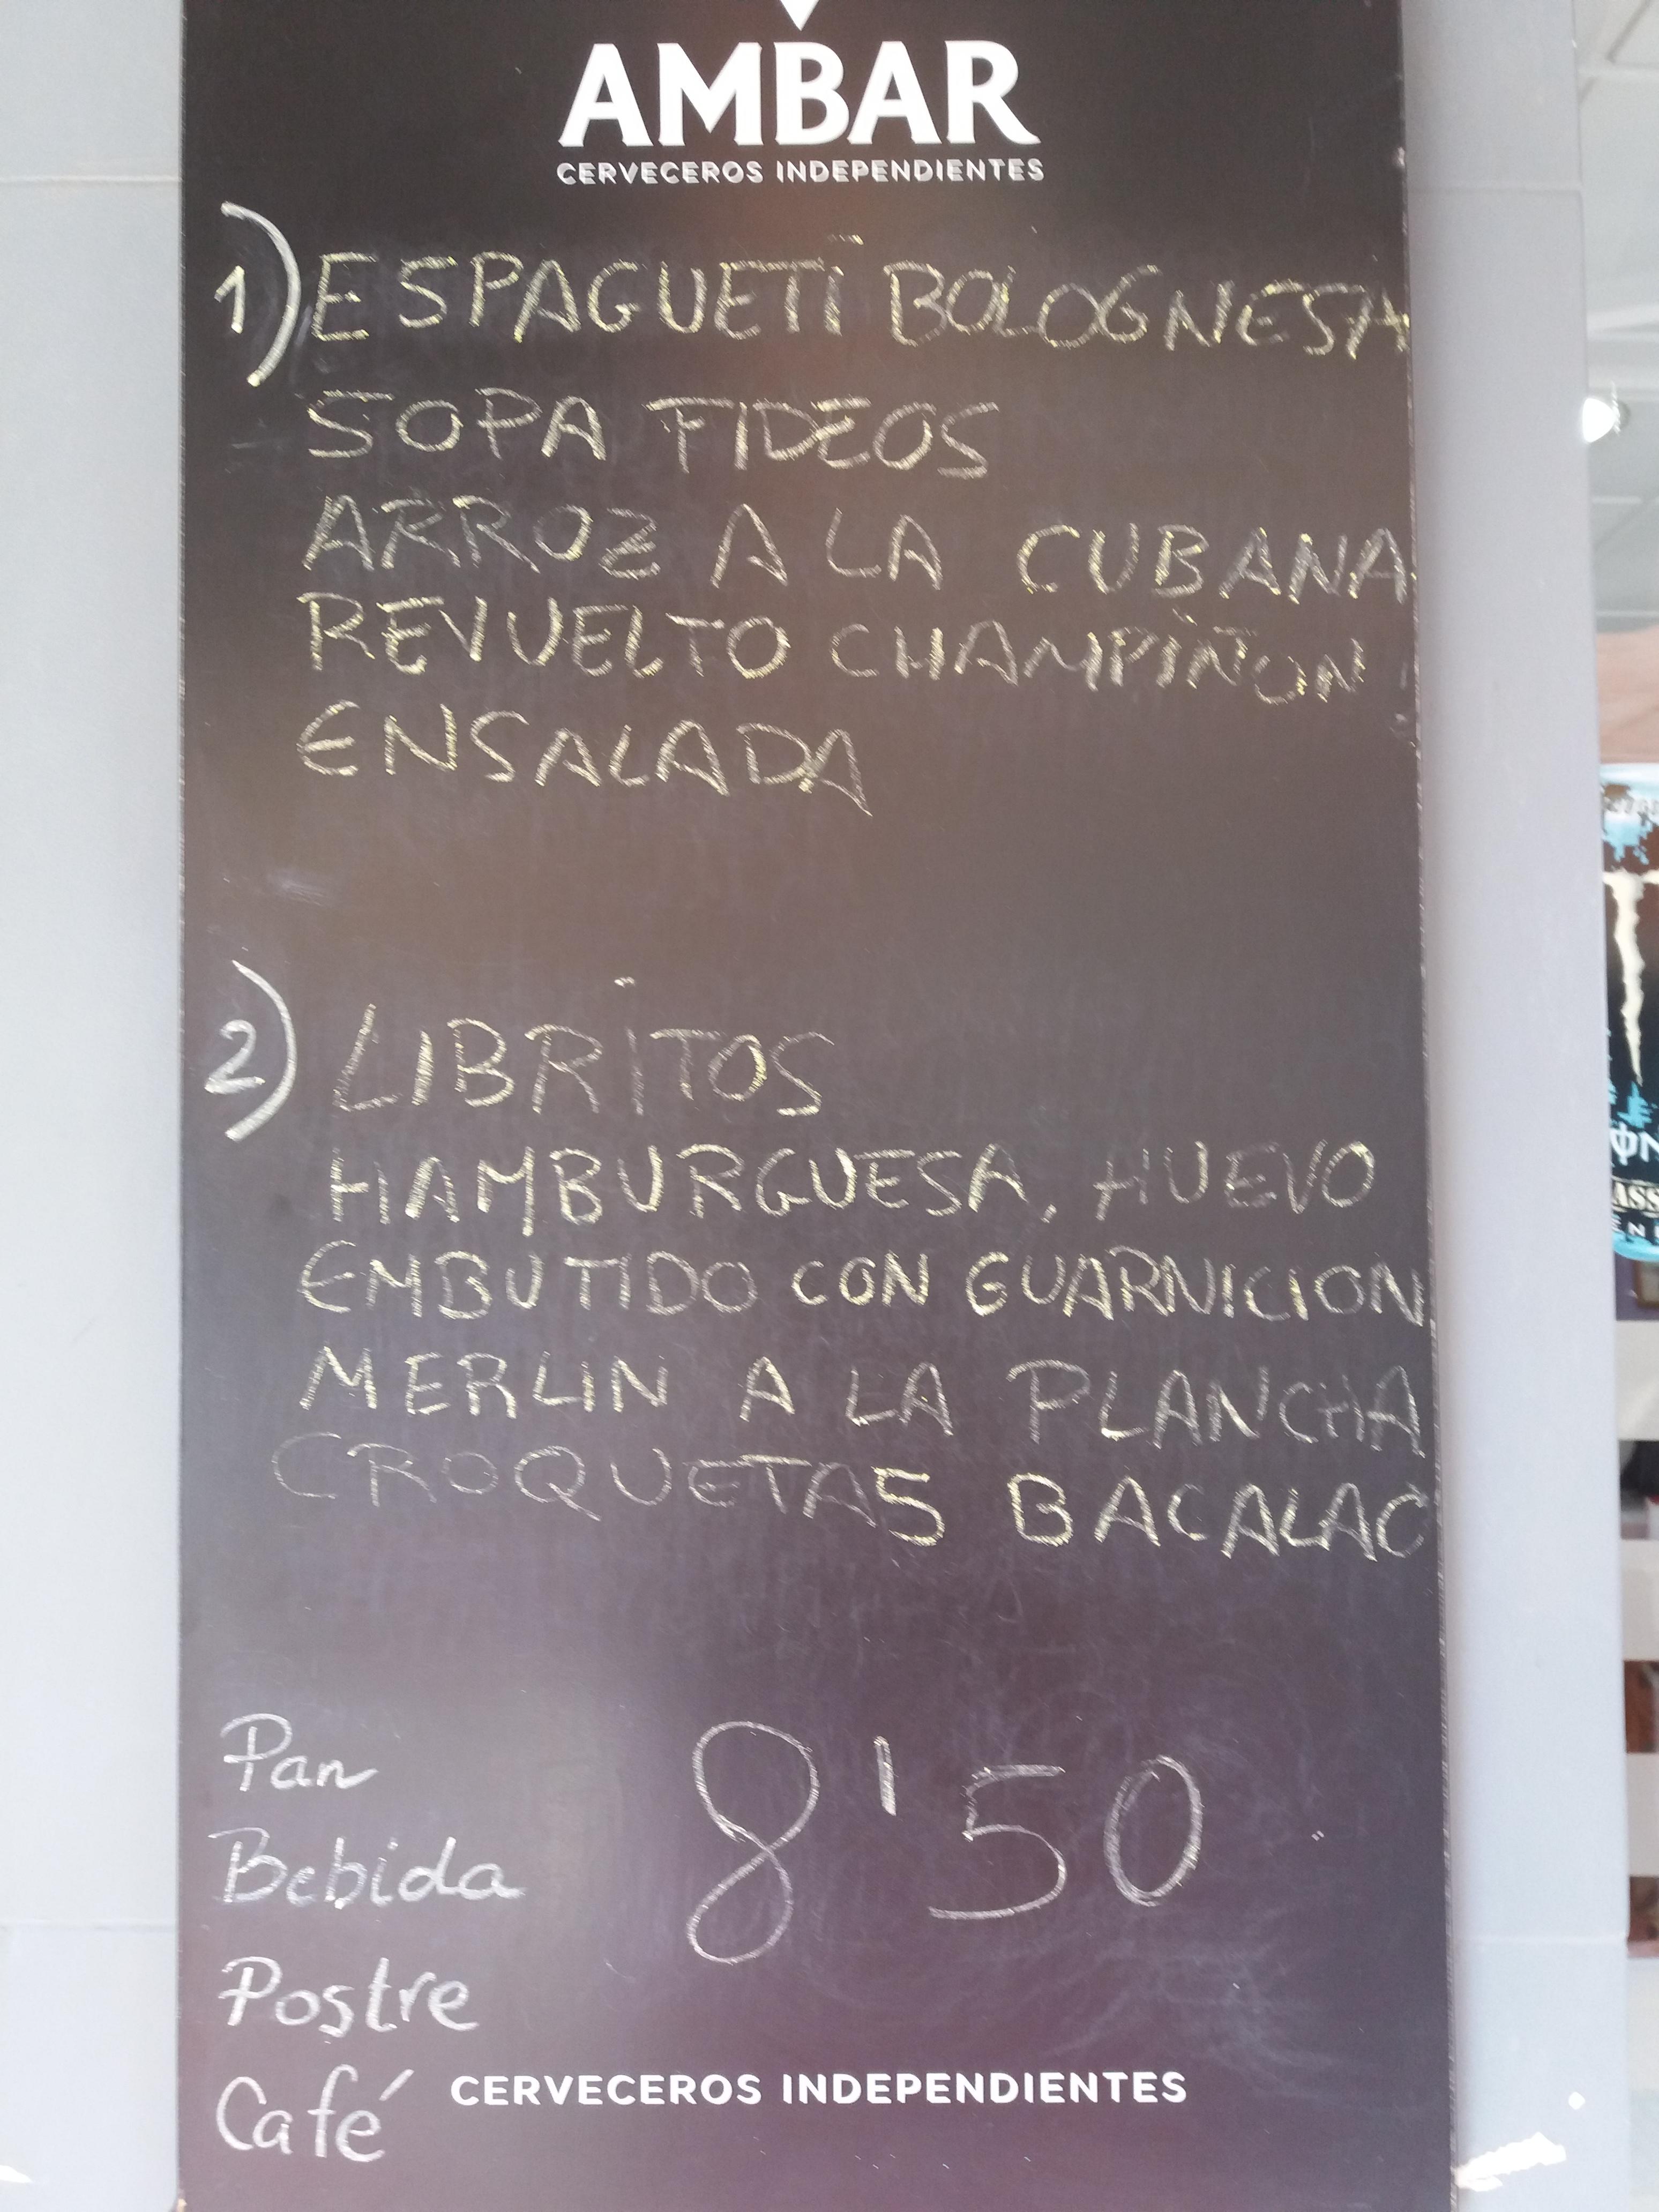 AMBAR
CERVECEROS INDEPENDIENTES
1) ESPAGUETI BOLOGNESA
SOPA FIDEOS
ARROZ A LA CUBANA
REVUELTO CHAMPIÑON
ENSALADA
2) LIBRITOS
HAMBURGUESA, HUEVO
EMBUTIDO CON GUARNICION
MERLIN A LA PLANCHA
CROQUETAS BACALAO
Pan
Bebida
8'50
Postre
Café
CERVECEROS INDEPENDIENTES